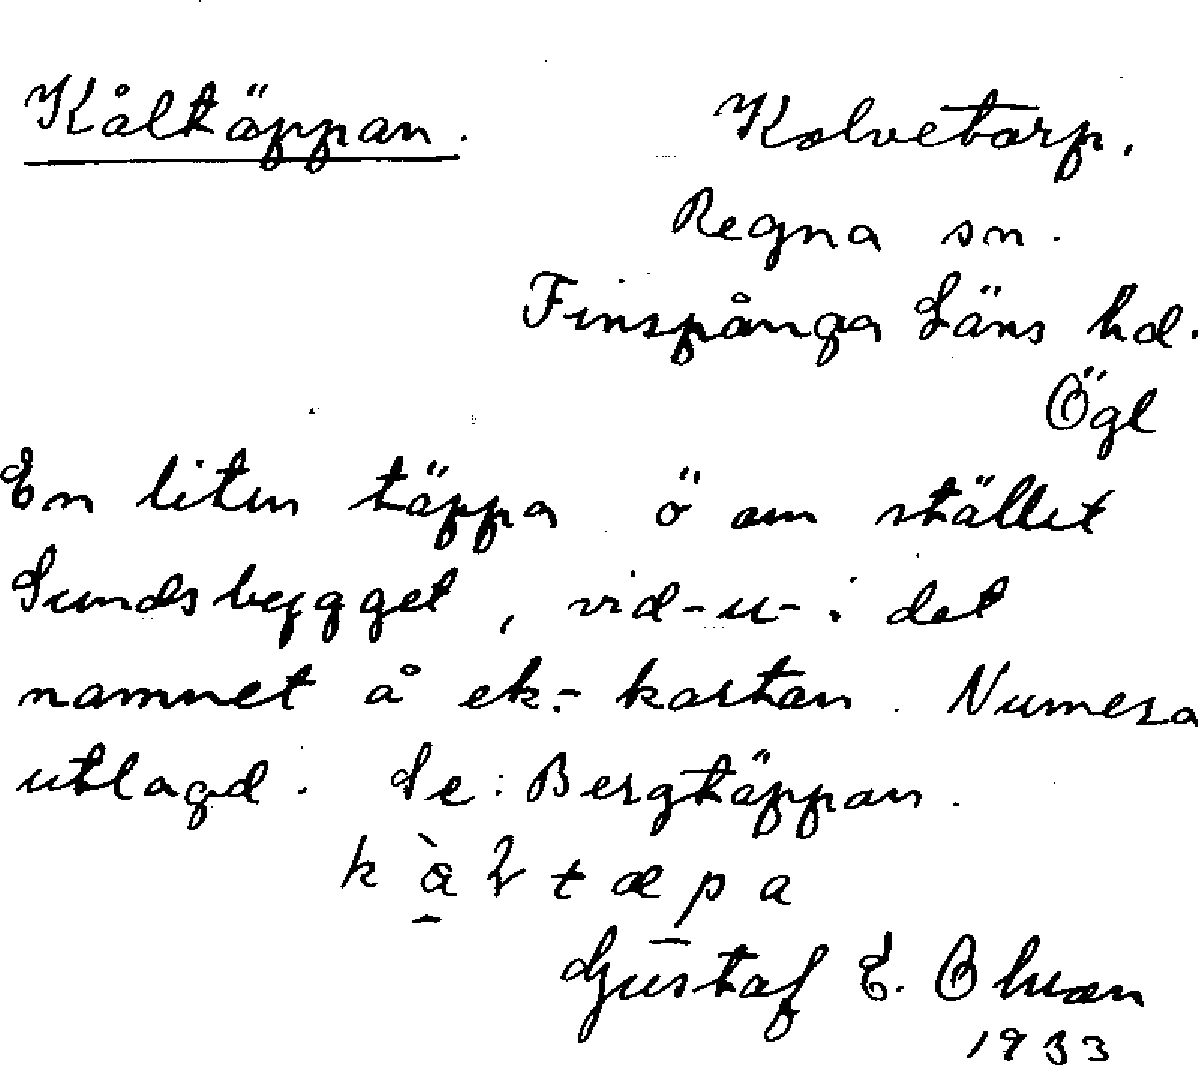 Kåltäppan. Kolvetorp.
Regna sn.
Finspånga Läns hd.
Ögl
En liten täppa ö om stället
Sundsbygget, vid-u-i det
namnet å ek:- kartan. Numera
utlagd. Se: Bergtäppan.
Gustaf E. Olsson
1933